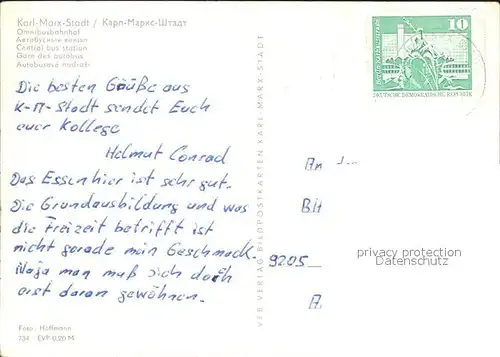 Karl-Marx-Stadt / Карл-Маркс-Штадт
Omnibusbahnhof
Central bus station
Gare des autobus
Die besten Grüße aus
K-M-Stadt sendet Euch
euer Kollege
Helmut Conrad
Das Essen hier ist sehr gut.
Die Grundausbildung und was
die Freizeit betrifft ist
nicht gerade mein Geschmack.
Naja man muß sich doch
erst daran gewöhnen.
Foto: Hoffmann
734 EVP 0,20 M
VEB VERLAG BILDPOSTKARTEN KARL-MARX-STADT
10
DEUTSCHE DEMOKRATISCHE REPUBLIK
An
BH
9205
privacy protection
Datenschutz